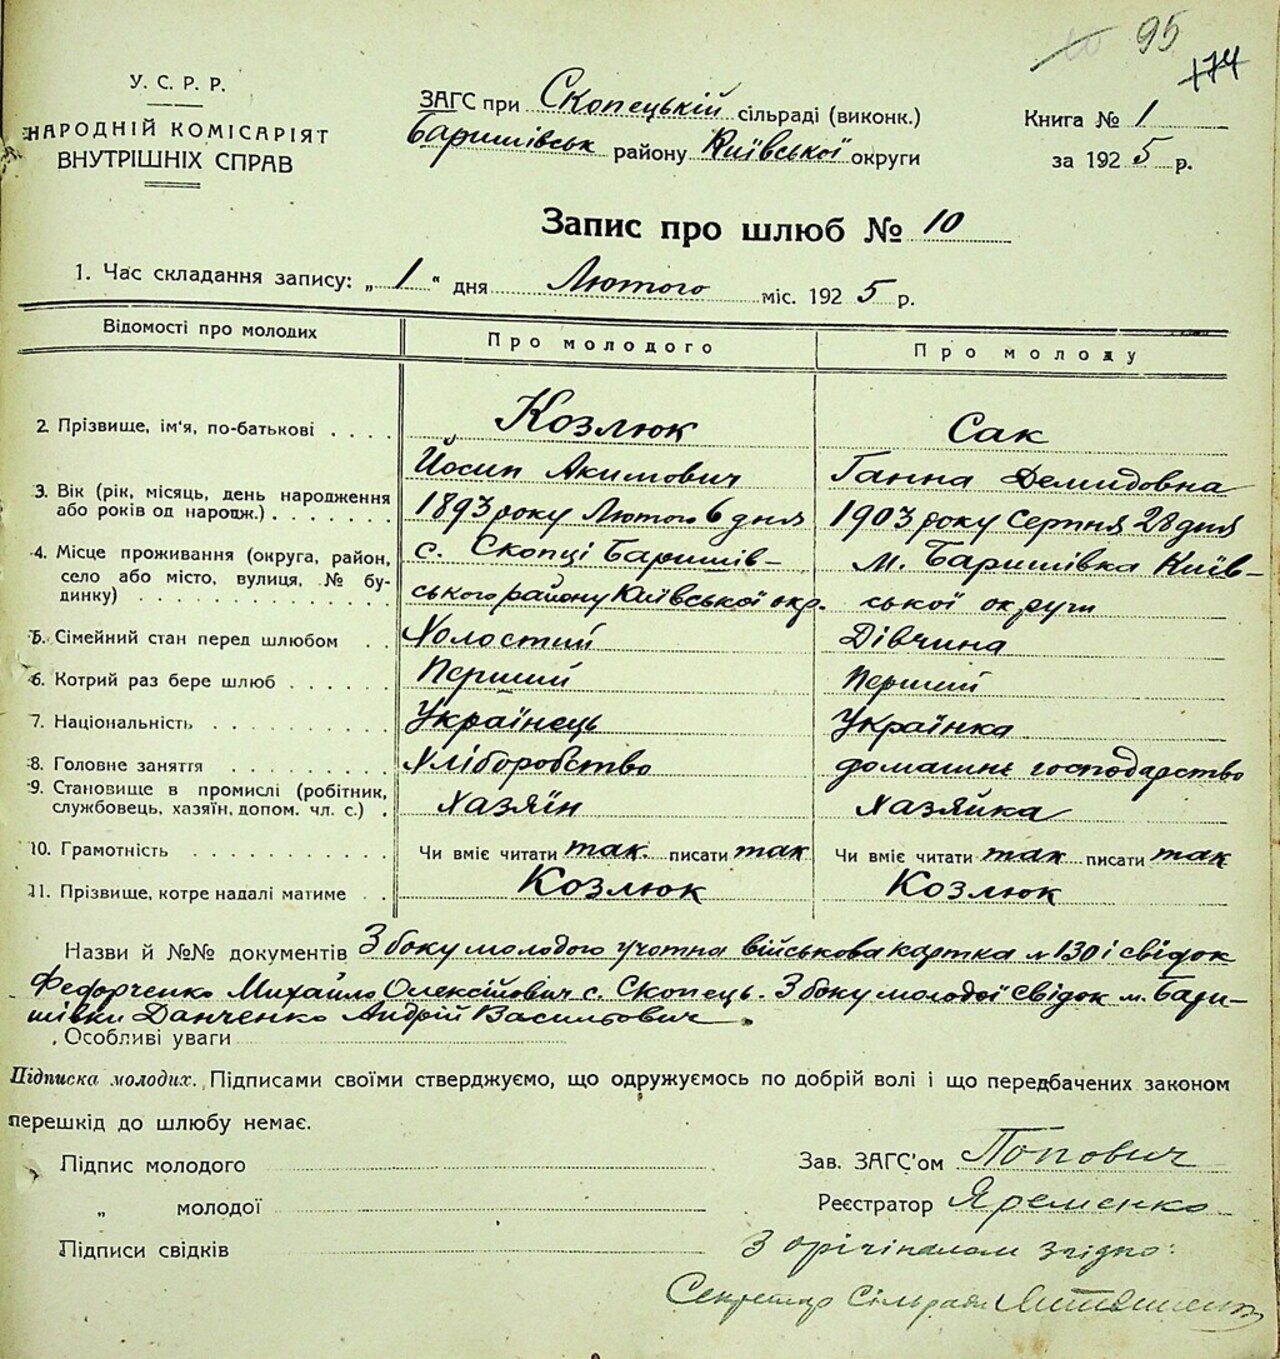 95
174
У. С. Р. Р.
НАРОДНІЙ КОМІСАРІЯТ
ВНУТРІШНІХ СПРАВ
ЗАГС при Скопецькій сільраді (виконк.)
Баришівськ району Київської округи
Книга № 1
за 1925 р.
Запис про шлюб № 10
1. Час складання запису: „1“ дня Лютого міс. 1925 р.
Відомості про молодих
Про молодого
Про молоду
2. Прізвище, ім'я, по-батькові
Козлюк
Сак
Йосип Акимович
Ганна Демидовна
3. Вік (рік, місяць, день народження
або років од народж.)
1893 року Лютого 6 дня
1903 року Серпня 28 дня
4. Місце проживання (округа, район,
село або місто, вулиця, № бу-
динку)
с. Скопці Баришів-
ського району Київської окр.
м. Баришівка Київ-
ської округи
5. Сімейний стан перед шлюбом
Холостий
Дівчина
6. Котрий раз бере шлюб
Перший
Перший
7. Національність
Українець
Українка
8. Головне заняття
Хліборобство
домашнє господарство
9. Становище в промислі (робітник,
службовець, хазяїн, допом. чл. с.)
Хазяїн
Хазяйка
10. Грамотність
Чи вміє читати так. писати так
Чи вміє читати так писати так
11. Прізвище, котре надалі матиме
Козлюк
Козлюк
Назви й №№ документів З боку молодого учотна військова картка № 130 і свідок
Федорченко Михайло Олексійович с. Скопець. З боку молодої свідок м. Бари-
шівки Данченко Андрій Васильович.
Особливі уваги
Підписка молодих. Підписами своїми стверджуємо, що одружуємось по добрій волі і що передбачених законом
перешкід до шлюбу немає.
Підпис молодого
„ молодої
Підписи свідків
Зав. ЗАГС'ом Попович
Реєстратор Яременко
З оріґіналом згідно:
Секретар Сільради